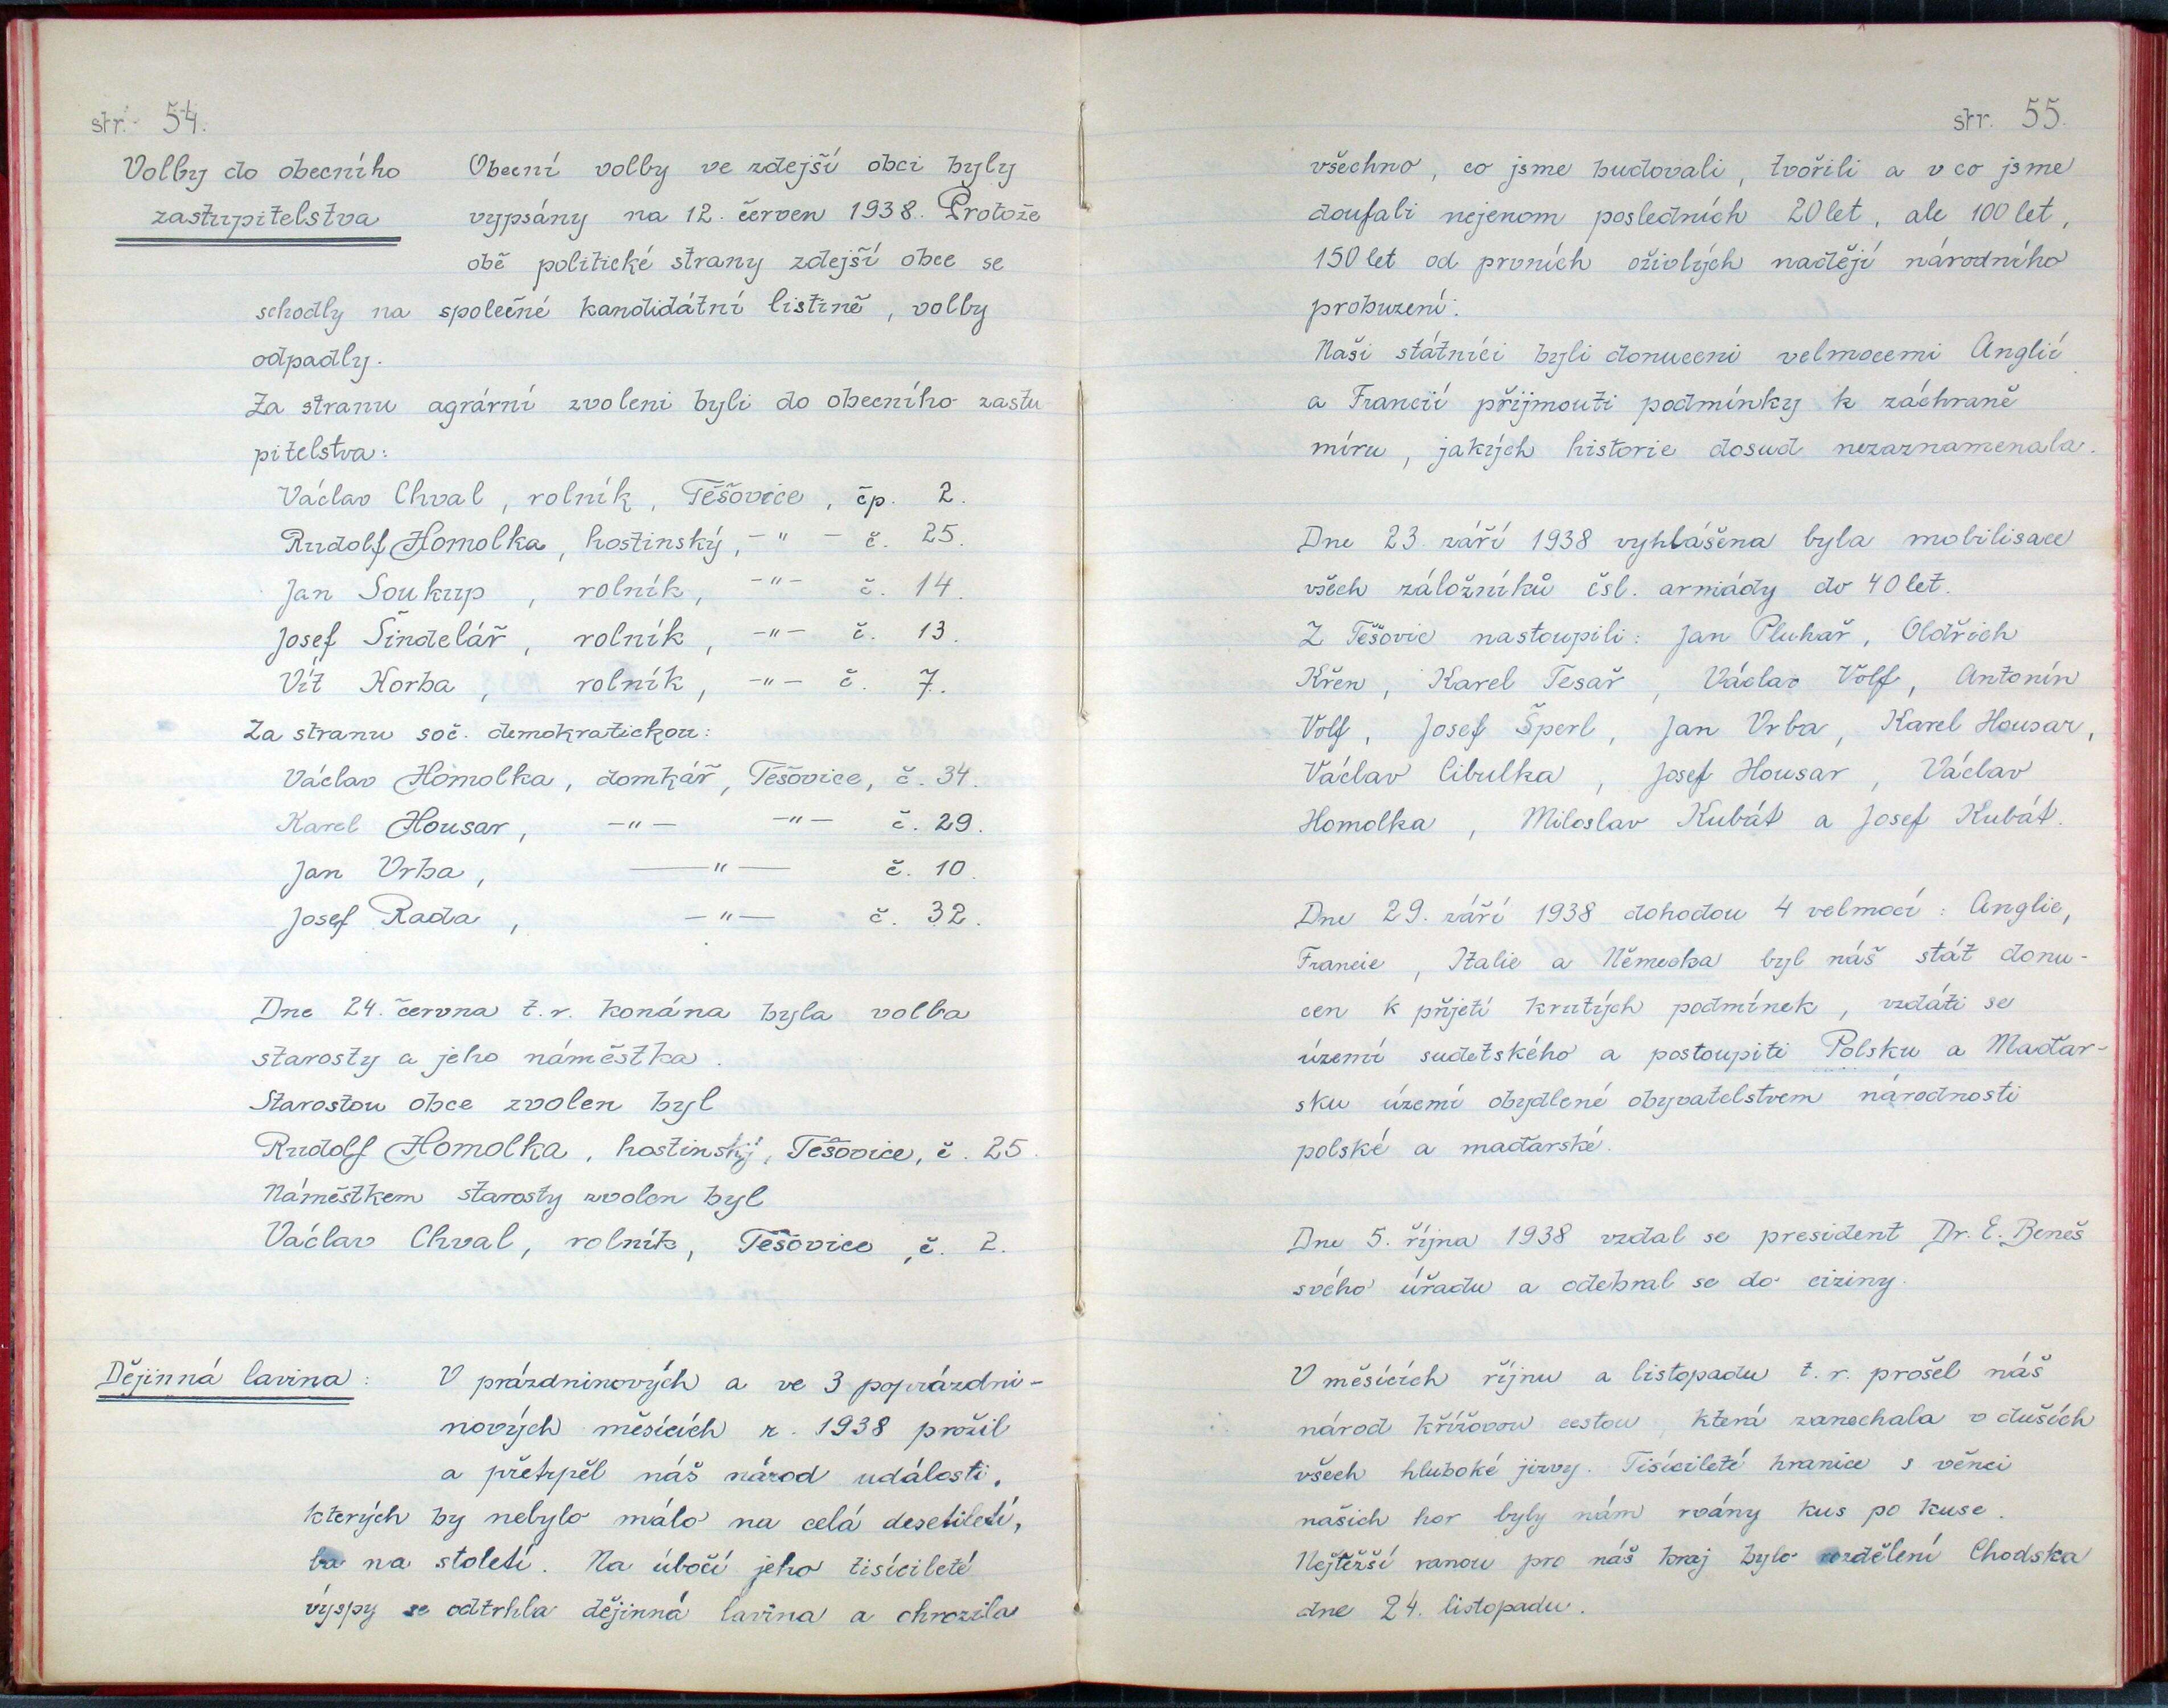 str. 54.
Volby do obecního
zastupitelstva
Obecní volby ve zdejší obci byly
vypsány na 12. červen 1938. Protože
obě politické strany zdejší obce se
schodly na společné kandidátní listině, volby
odpadly.
Za stranu agrární zvoleni byli do obecního zastu
pitelstva:
Václav Chval, rolník, Těšovice, čp. 2.
Rudolf Homolka, hostinský, -"- č. 25.
Jan Soukup, rolník, -"- č. 14.
Josef Šindelář, rolník, -"- č. 13.
Vít Korba, rolník, -"- č. 7.
Za stranu soč. demokratickou:
Václav Homolka, domkář, Těšovice, č. 34.
Karel Housar, -"- -"- č. 29.
Jan Vrba, -"- č. 10.
Josef Rada, -"- č. 32.
Dne 24. června t. r. konána byla volba
starosty a jeho náměstka.
Starostou obce zvolen byl
Rudolf Homolka, hostinský, Těšovice, č. 25.
Náměstkem starosty zvolen byl
Václav Chval, rolník, Těšovice, č. 2.
Dějinná lavina:
V prázdninových a ve 3 poprázdni-
nových měsících r. 1938 prožil
a přetrpěl náš národ události,
kterých by nebylo málo na celá desetiletí,
ba na století. Na úbočí jeho tisícileté
výspy se odtrhla dějinná lavina a ohrozila
str. 55.
všechno, co jsme budovali, tvořili a v co jsme
doufali nejenom posledních 20 let, ale 100 let,
150 let od prvních oživlých nadějí národního
probuzení.
Naši státníci byli donuceni velmocemi Anglií
a Francií přijmouti podmínky k záchraně
míru, jakých historie dosud nezaznamenala.
Dne 23. září 1938 vyhlášena byla mobilisace
všech záložníků čsl. armády do 40 let.
Z Těšovic nastoupili: Jan Pluhař, Oldřich
Křen, Karel Tesař, Václav Volf, Antonín
Volf, Josef Šperl, Jan Vrba, Karel Housar,
Václav Cibulka, Josef Housar, Václav
Homolka, Miloslav Kubát a Josef Kubát.
Dne 29. září 1938 dohodou 4 velmocí: Anglie,
Francie, Italie a Německa byl náš stát donu-
cen k přijetí krutých podmínek, vzdáti se
území sudetského a postoupiti Polsku a Maďar-
sku území obydlené obyvatelstvem národnosti
polské a maďarské.
Dne 5. října 1938 vzdal se president Dr. E. Beneš
svého úřadu a odebral se do ciziny.
V měsících říjnu a listopadu t. r. prošel náš
národ křížovou cestou, která zanechala v duších
všech hluboké jizvy. Tisícileté hranice s věnci
našich hor byly nám rvány kus po kuse.
Nejtěžší ranou pro náš kraj bylo rozdělení Chodska
dne 24. listopadu.